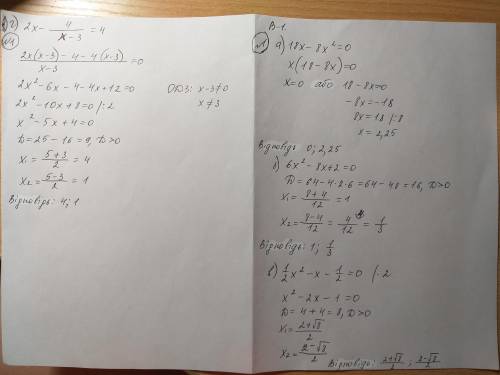 г) 2x - 4/(x-3) = 4
(2x(x-3) - 4 - 4(x-3))/(x-3) = 0
2x² - 6x - 4 - 4x + 12 = 0 ОДЗ: x-3≠0
2x² - 10x + 8 = 0 /:2 x≠3
x² - 5x + 4 = 0
D = 25 - 16 = 9, D>0
x₁ = (5+3)/2 = 4
x₂ = (5-3)/2 = 1
Відповідь: 4; 1
В-1.
№1 а) 18x - 8x² = 0
x(18 - 8x) = 0
x = 0 або 18 - 8x = 0
-8x = -18
8x = 18 /:8
x = 2,25
Відповідь: 0; 2,25
б) 6x² - 8x + 2 = 0
D = 64 - 4·2·6 = 64 - 48 = 16, D>0
x₁ = (8+4)/12 = 1
x₂ = (8-4)/12 = 4/12 = 1/3
Відповідь: 1; 1/3
в) 1/2 x² - x - 1/2 = 0 /·2
x² - 2x - 1 = 0
D = 4 + 4 = 8, D>0
x₁ = (2+√8)/2
x₂ = (2-√8)/2
Відповідь: (2+√8)/2; (2-√8)/2